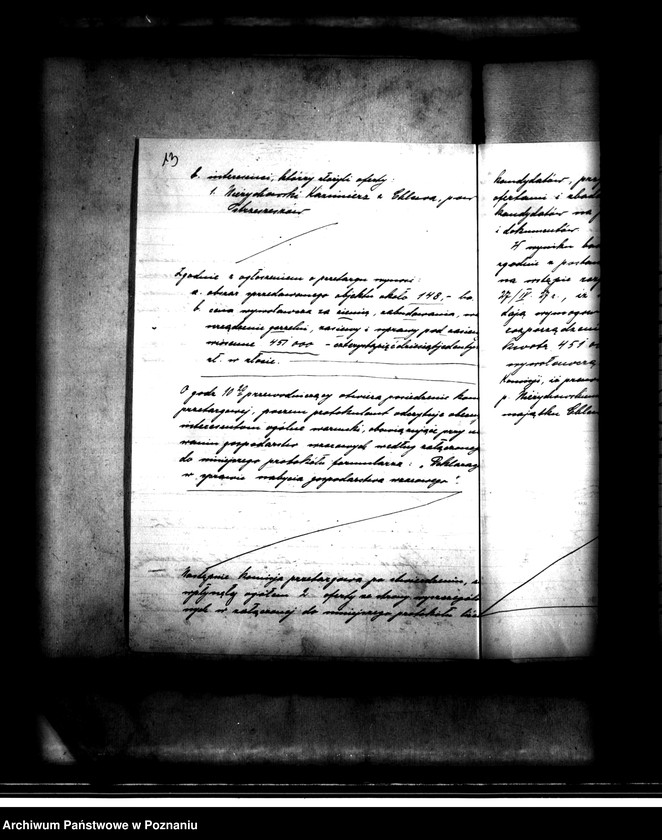 13
b. interesenci, którzy złożyli oferty:
1. Nieżychowski Kazimierz z Chlewa, pow.
Ostrzeszów
Zgodnie z ogłoszeniem o przetargu wynosi:
a. obszar sprzedawanego objektu około 148,- ha,
b. cena wywoławcza za ziemię, zabudowania,
urządzenie gorzelni, zasiewy i uprawy pod zasiew
451 000
zł. w złocie.
O godz 10 przewodniczący otwiera posiedzenie kom
przetargowej, poczem protokulant odczytuje obecny
interesentom ogólne warunki, obowiązujące przy
waniu gospodarstw wzorowych według załączonego
do niniejszego protokółu formularza: „Deklarac
w sprawie nabycia gospodarstwa wzorowego".
Następnie Komisja przetargowa po stwierdzeniu, ż
wpłynęły ogółem 2 oferty
nych w załączonej do niniejszego protokółu liś
kandydatów, prz
ofertami i zbada
kandydatów na
i dokumentów
W wyniku
zgodnie z posta
na wstępie
27/IV. 27 r., iż
dają wymogom
rozporządzeni
Kwota 451 0
wywoławczą
Komisji, iż
p. Nieżychowskiem
majątku Chlew
Archiwum Państwowe w Poznaniu